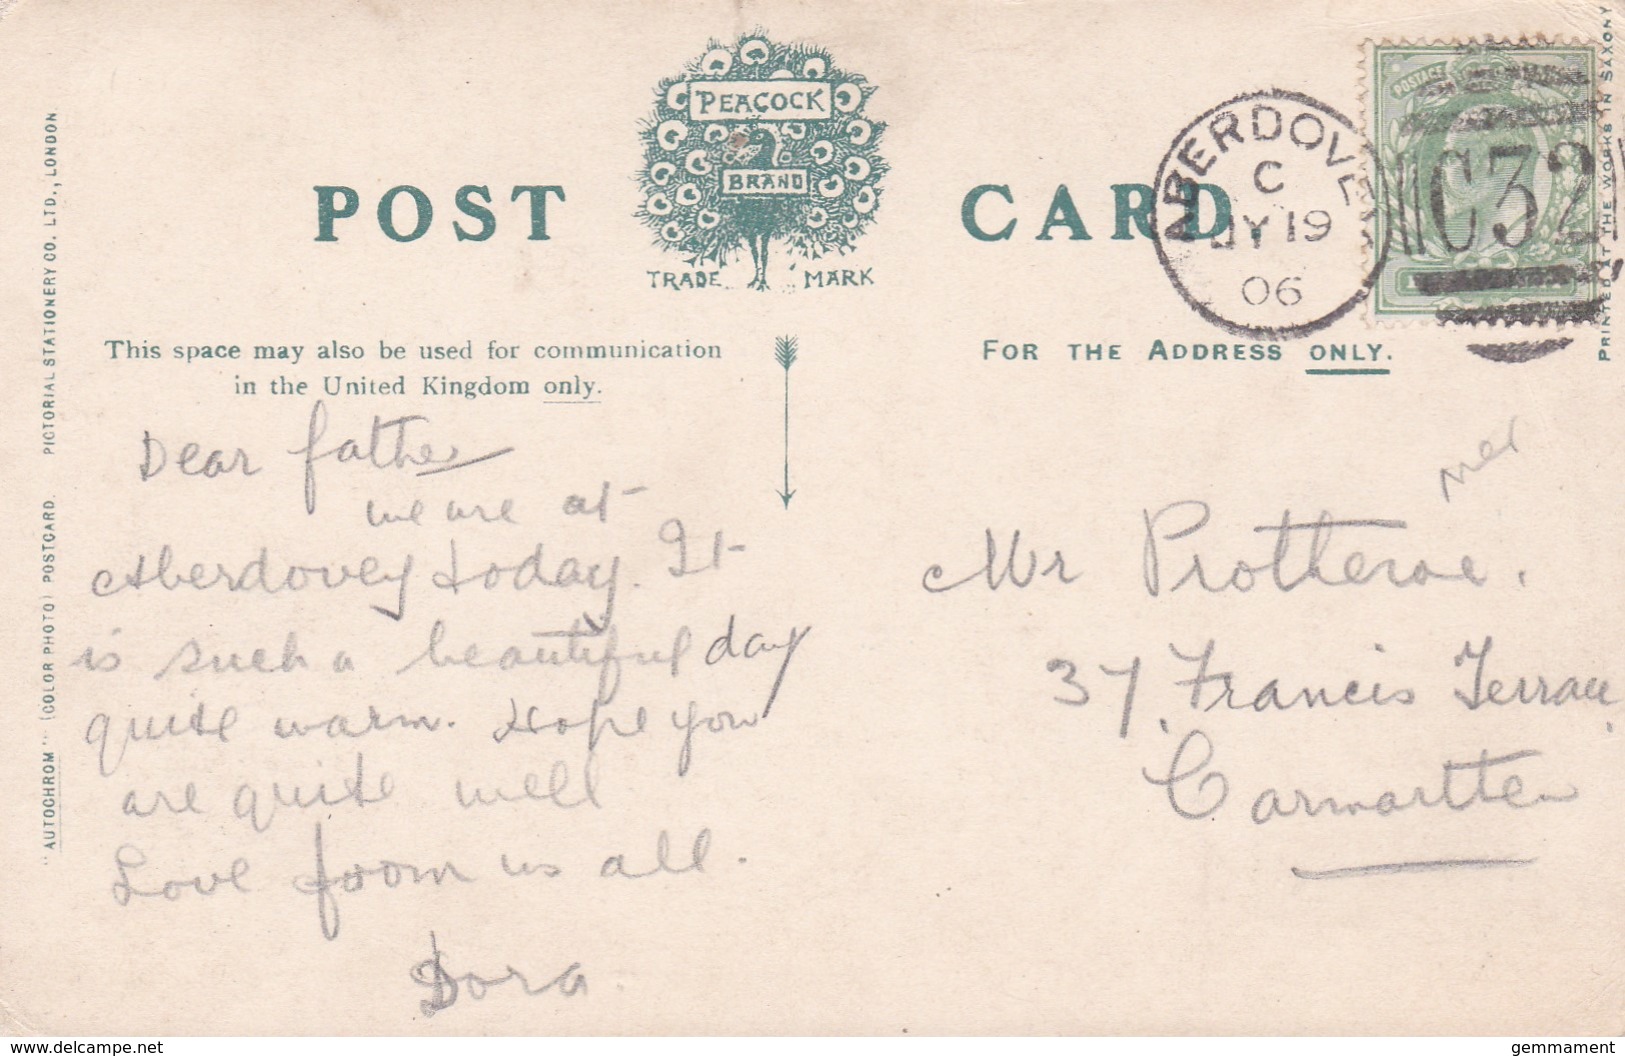 POST CARD
PEACOCK
BRAND
TRADE MARK
This space may also be used for communication
in the United Kingdom only.
FOR THE ADDRESS ONLY.
ABERDOVEY
C
JY 19
06
C32
POSTAGE
"AUTOCHROM" (COLOR PHOTO) POSTCARD. PICTORIAL STATIONERY CO. LTD., LONDON
PRINTED AT THE WORKS IN SAXONY
Dear father
we are at
Aberdovey today. It
is such a beautiful day
quite warm. Hope you
are quite well
Love from us all.
Dora.
Mr Protheroe.
37, Francis Terrace,
Carmarthen
delcampe.net
gemmament